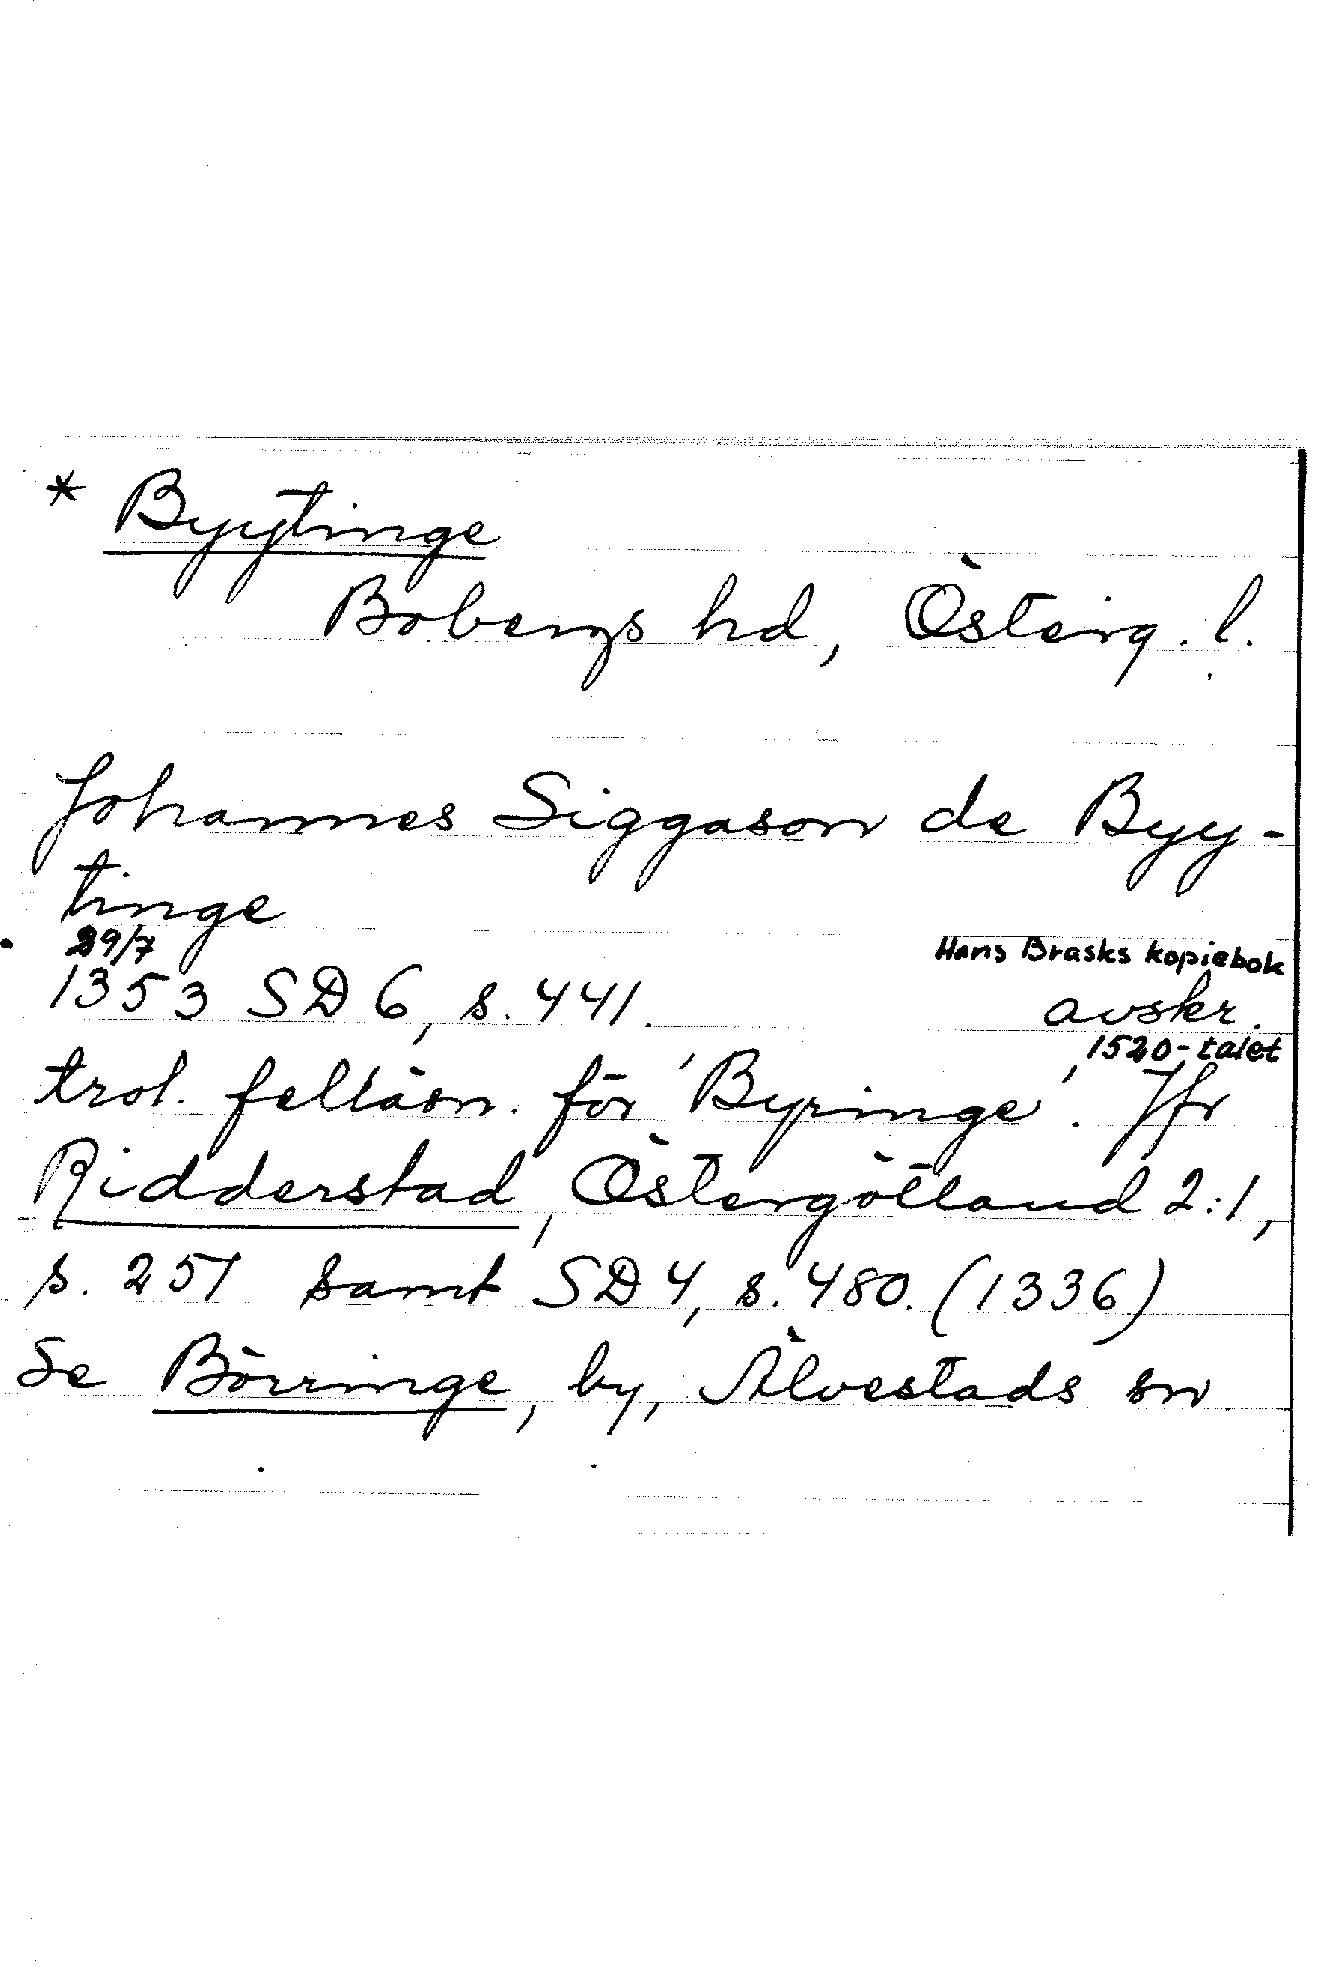 * Byytinge
Bobergs hd, Österg. l.
Johannes Siggason de Byy-
tinge
29/7
Hans Brasks kopiebok
1353 SD 6, s. 441. avskr.
1520-talet
trol. felläsn. för 'Byringe'. Jfr
Ridderstad, Östergötland 2:1,
s. 251 samt SD 4, s. 480. (1336)
Se Börringe, by, Älvestads sn